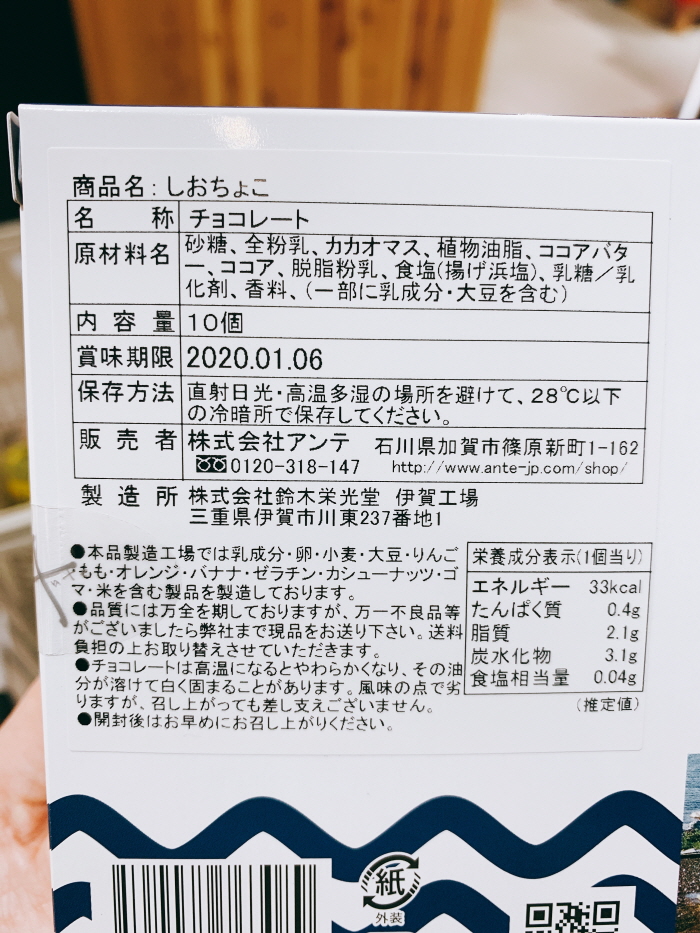 商品名：しおちょこ
名称 チョコレート
原材料名 砂糖、全粉乳、カカオマス、植物油脂、ココアバタ
ー、ココア、脱脂粉乳、食塩(揚げ浜塩)、乳糖／乳
化剤、香料、（一部に乳成分・大豆を含む）
内容量 10個
賞味期限 2020.01.06
保存方法 直射日光・高温多湿の場所を避けて、28℃以下
の冷暗所で保存してください。
販売者 株式会社アンテ 石川県加賀市篠原新町1-162
0120-318-147 http://www.ante-jp.com/shop/
製造所 株式会社鈴木栄光堂 伊賀工場
三重県伊賀市川東237番地1
●本品製造工場では乳成分・卵・小麦・大豆・りんご
・もも・オレンジ・バナナ・ゼラチン・カシューナッツ・ゴ
マ・米を含む製品を製造しております。
●品質には万全を期しておりますが、万一不良品等
がございましたら弊社まで現品をお送り下さい。送料
負担の上お取り替えさせていただきます。
●チョコレートは高温になるとやわらかくなり、その油
分が溶けて白く固まることがあります。風味の点で劣
りますが、召し上がっても差し支えございません。
●開封後はお早めにお召し上がりください。
栄養成分表示(1個当り)
エネルギー 33kcal
たんぱく質 0.4g
脂質 2.1g
炭水化物 3.1g
食塩相当量 0.04g
（推定値）
紙
外装